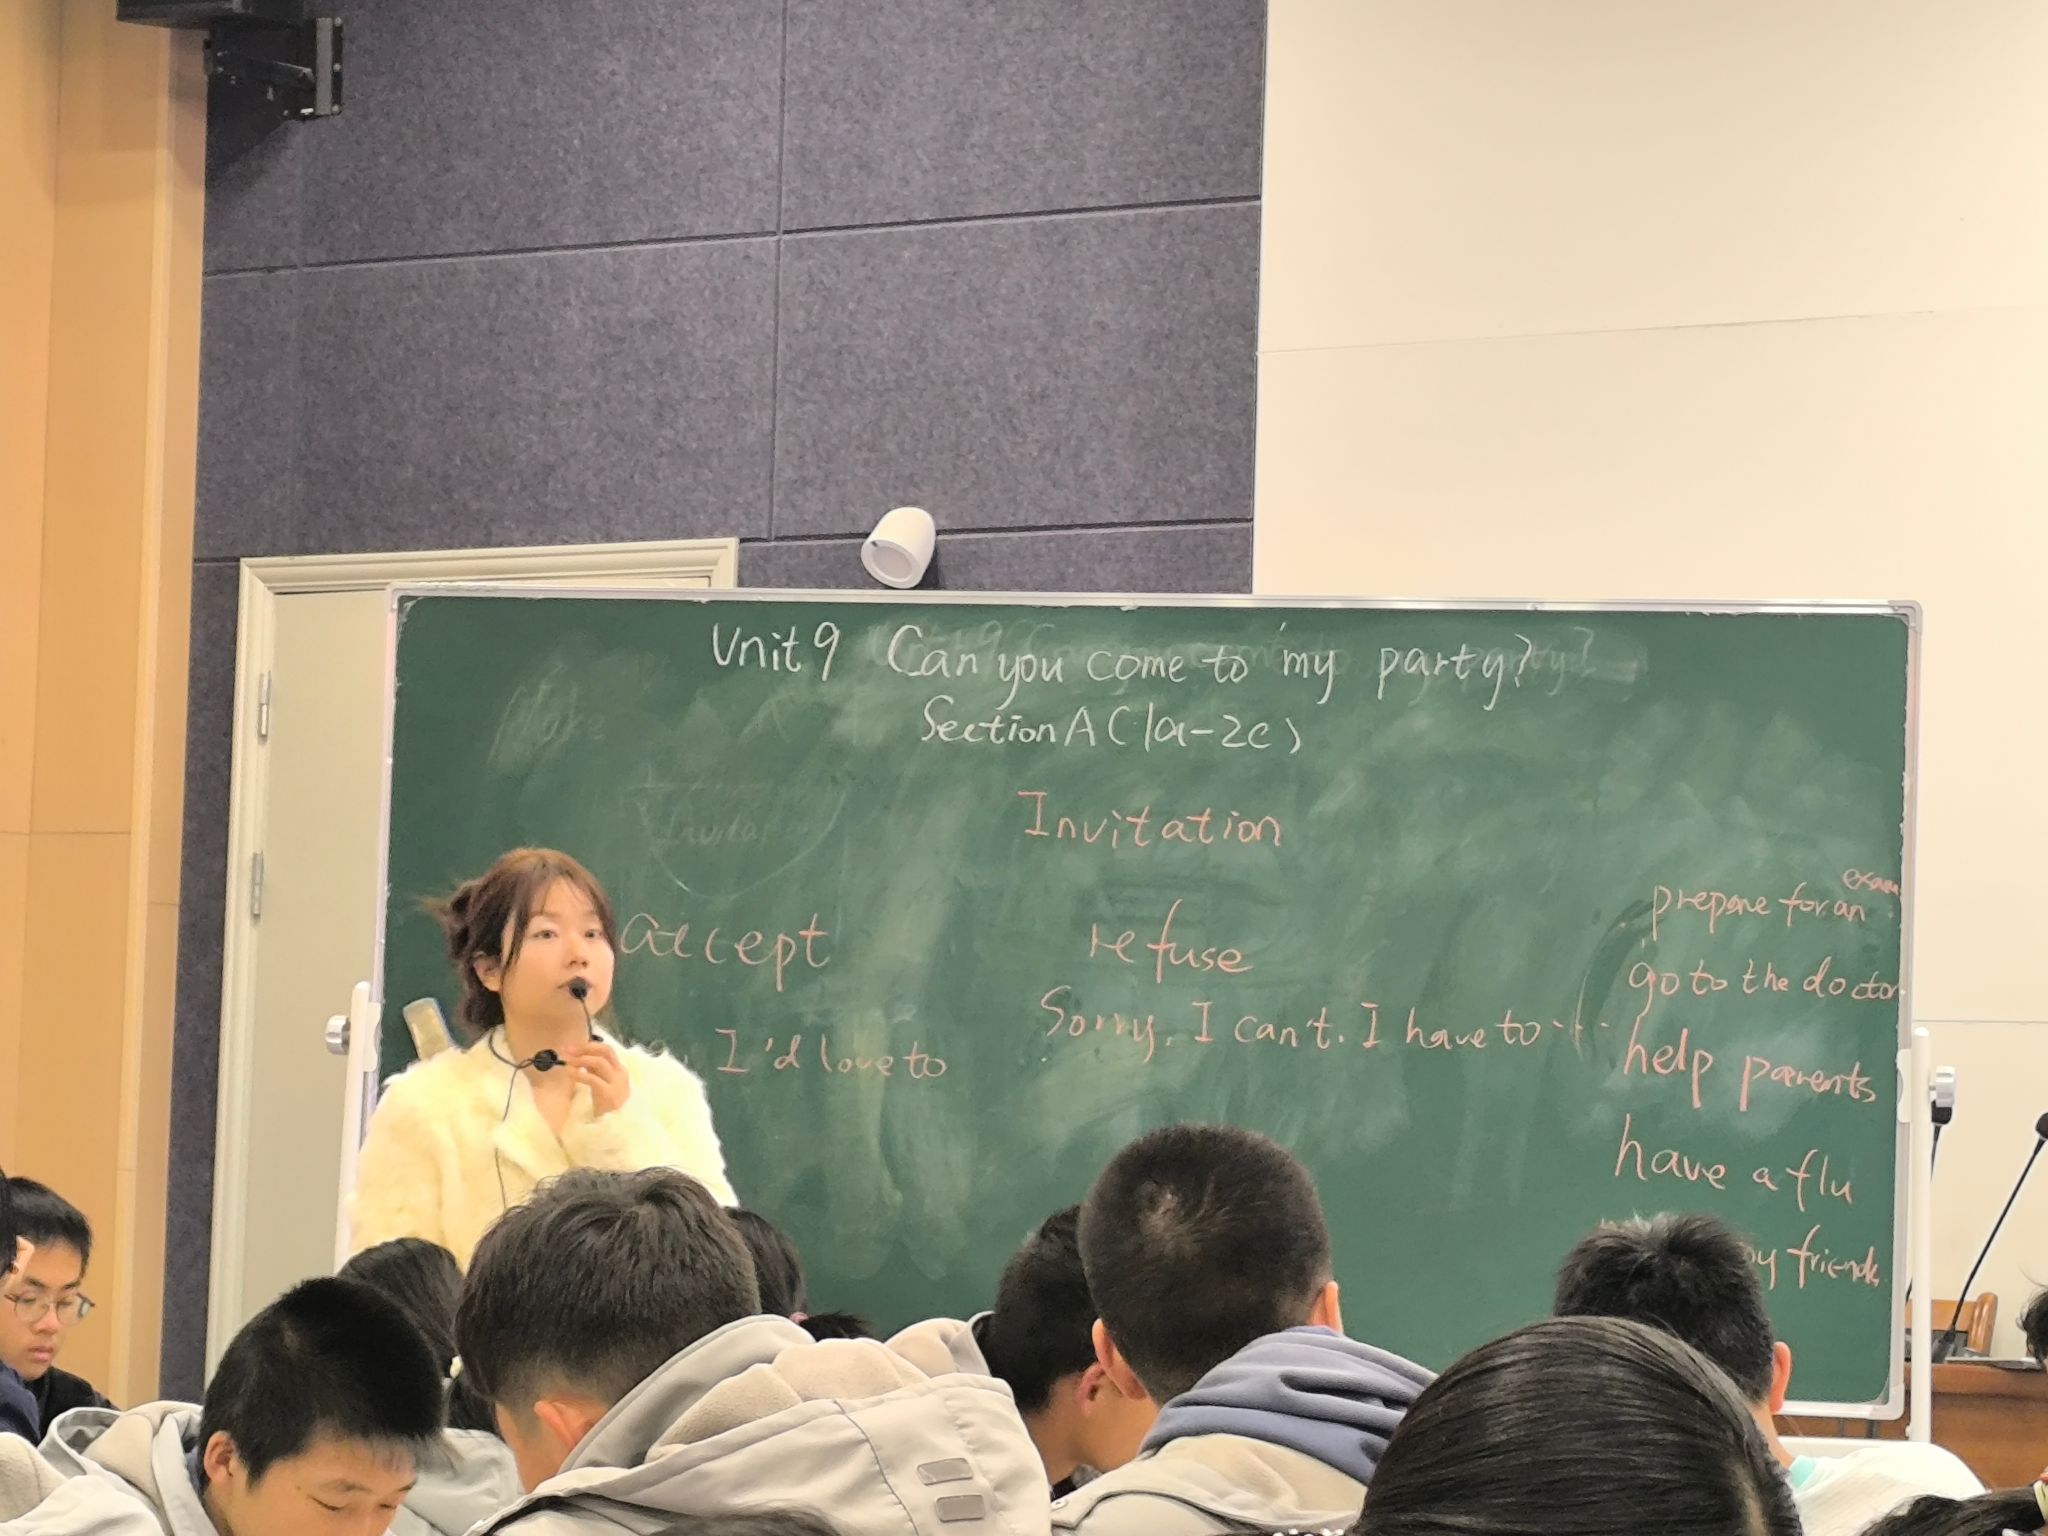 Unit 9 Can you come to my party?
Section A (1a-2c)
Invitation
accept
refuse
I'd love to
Sorry, I can't. I have to ...
exam
prepare for an
go to the doctor.
help parents
have a flu
my friends